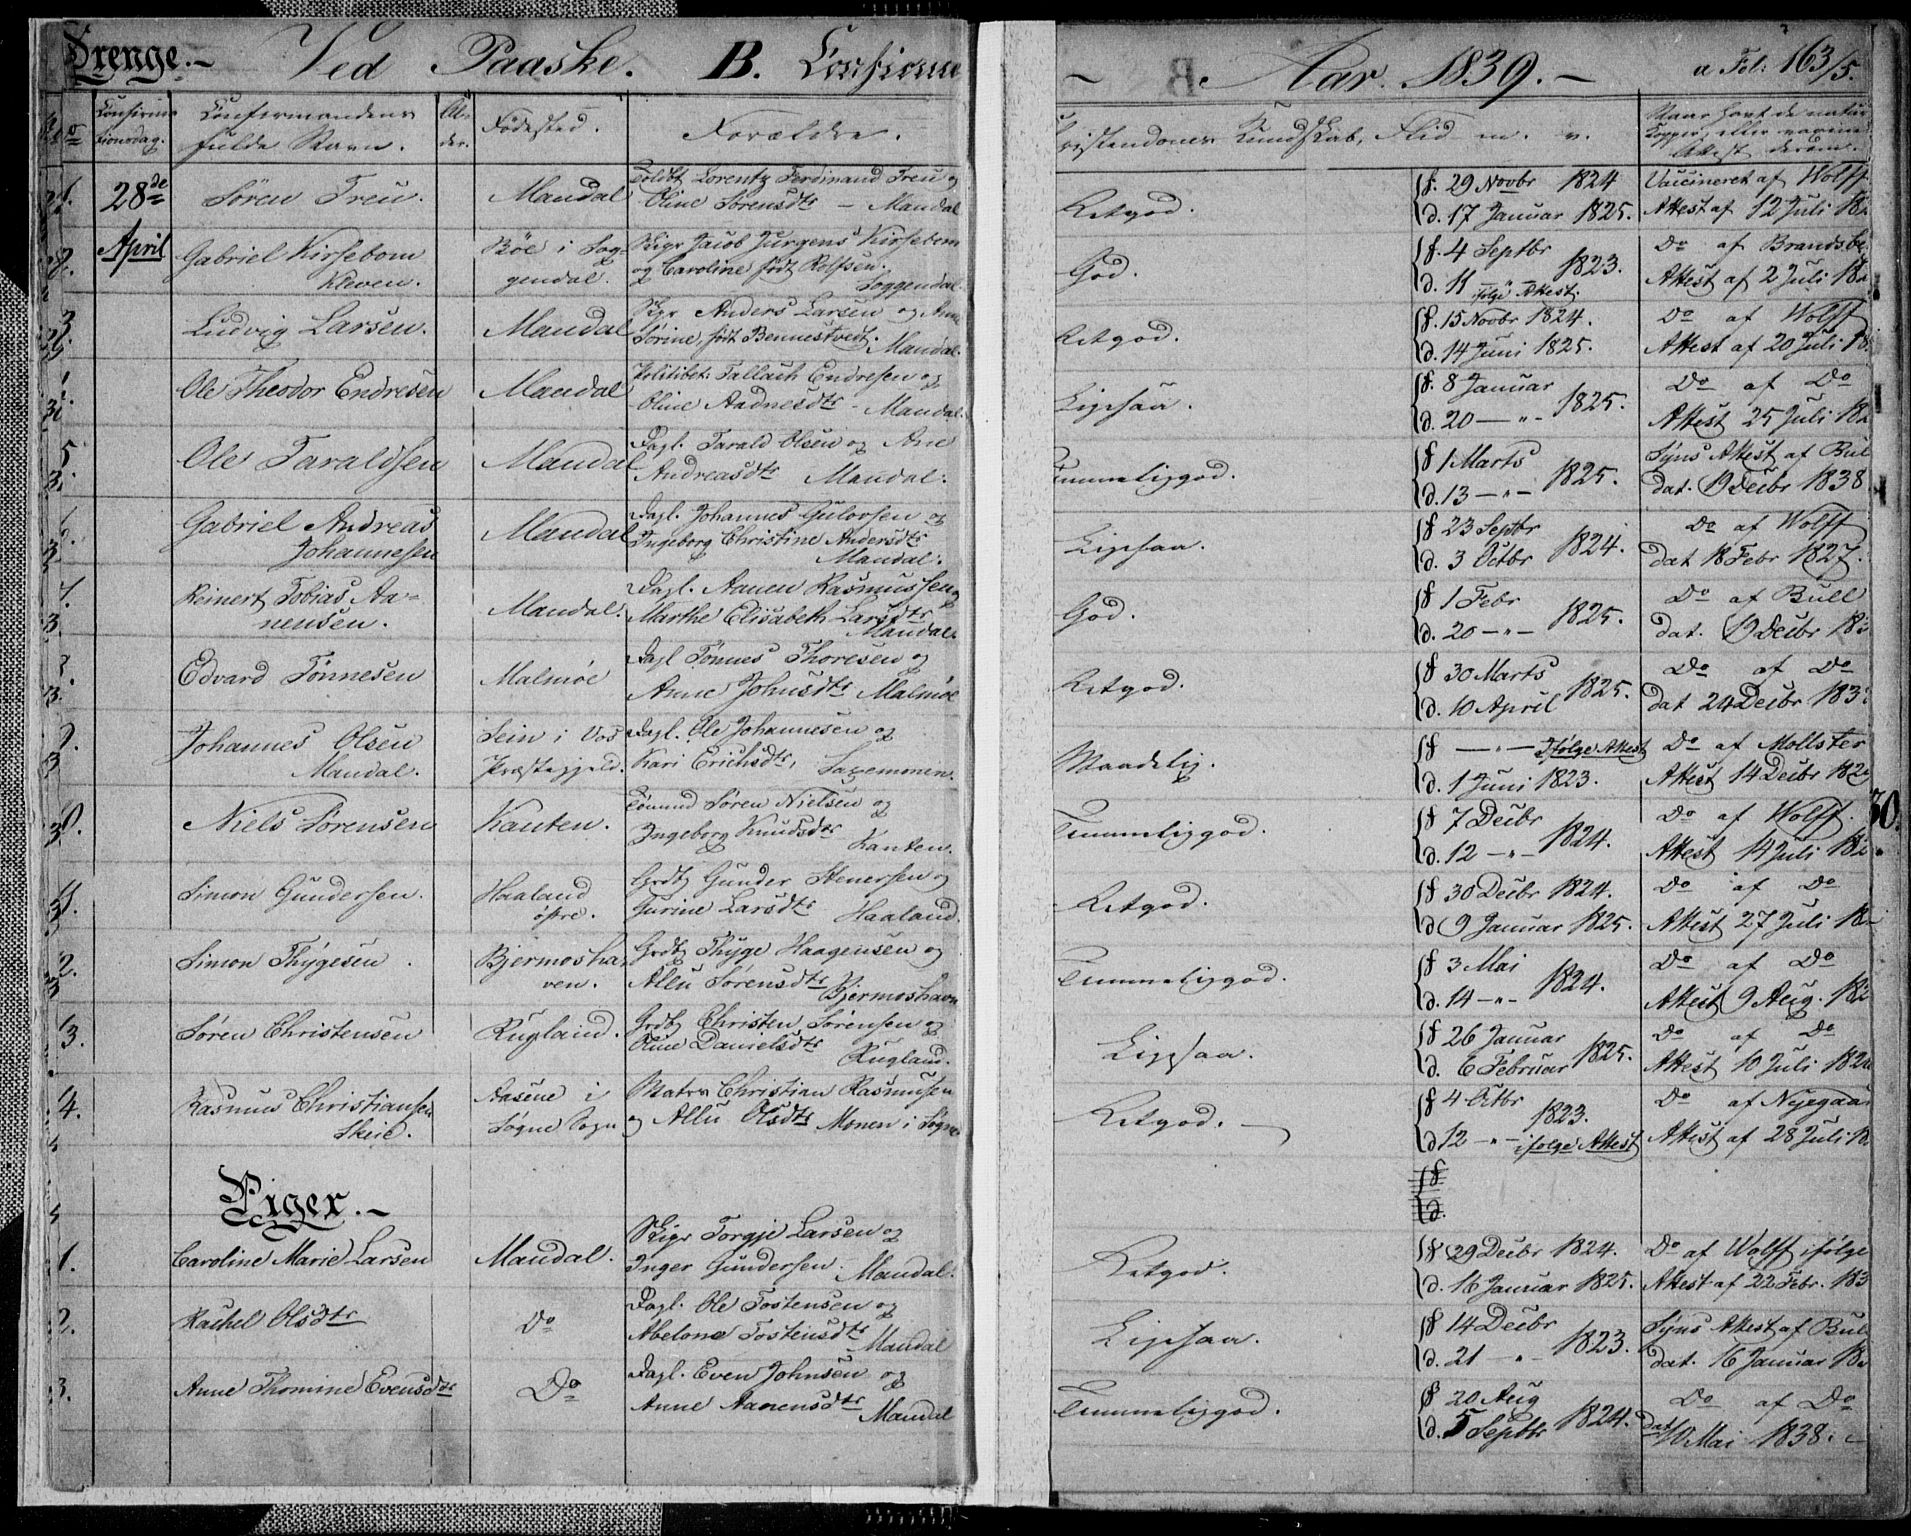 Drenge.- Ved Paaske. B. Confirme
- Aar. 1839.- a Fol: 163/5.
No Confirmationsdag. Confirmandens fulde Navn. Alder. Fødested. Forældre.
Kundskab, Flid m. v.
28de April
1. Søren Treu. Mandal
Lorentz Ferdinand Treu og
Oline Sørensdtr - Mandal
Retgod.
f. 29 Novbr 1824
d. 17 Januar 1825.
Vaccineret af Wolff
Attest af 12 Juli
2. Gabriel Kirsebom
Kleven.
Bøe i Sog-
gendal.
Skpr Jacob Jurgens Kirsebom
og Caroline født Rolfsen.
Soggendal.
God.
f. 4 Septbr
d. 11 - 1823.
ifølge Attest.
Do af
Attest af 2 Juli
3. Ludvig Larsen. Mandal
Skpr Anders Larsen og Anne
Sørine, født Bennestvedt. Mandal.
Retgod.
f. 15 Novbr 1824.
d. 14 Juni 1825.
Do af Wolff
Attest af 20 Juli
Ole Theodor Endresen Mandal
Politibet: Tallach Endresen og
Oline Aadnesdtr - Mandal.
Ligesaa.
f. 8 Januar
d. 20 - " - 1825.
Do af Do
Attest 25 Juli
5. Ole Taraldsen Mandal
Dagl. Tarald Olsen og Ane
Andreasdtr Mandal.
Temmeliggod.
f 1 Marts
d. 13 - " - 1825.
Syns Attest af Bul
dat. 19 Decbr 1838
6. Gabriel Andreas
Johannesen
Mandal
Dagl. Johannes Gulovsen og
Ingeborg Christine Andersdtr
Mandal.
Ligesaa.
f 23 Septbr
d. 3 Octbr 1824.
Do af Wolff
dat 18 Febr 1827.
7. Reinert Tobias Aa-
nensen.
Mandal.
Dagl. Aanen Rasmussen og
Marthe Elisabeth Larsdtr
Mandal.
God.
f 1 Febr
d. 20 - " - 1825.
Do af Bull
dat. 19 Decbr
Edvard Tønnesen Malmøe
Dagl Tønnes Thoresen og
Anne Johnsdtr Malmøe
Retgod.
f 30 Marts
d. 10 April 1825.
Do af Do
dat 24 Decbr
9. Johannes Olsen
Mandal.
i Vos
Præstegjeld.
Dagl. Ole Johannesen og
Kari Erichsdtr,
Maadelig.
f - " - Ifølge Attest
d. 1 Juni 1823.
Do af Mollster
Attest 14 Decbr
Niels Sørensen Kanten.
Søren Nielsen og
Ingeborg Knudsdtr Kanten.
Temmeliggod.
f 7 Decbr
d. 12 - " - 1824.
Do af Wolff.
Attest 14 Juli
Simon Gundersen. Haaland
øfre.
Grdbr Gunder Stenersen og
Gurine Larsdtr Haaland.
Retgod.
f 30 Decbr 1824.
d 9 Januar 1825.
Do af Do
Attest 27 Juli
2. Simon Thygesen. Bjermosha-
ven.
Grdbr Thyge Haagensen og
Allu Sørensdtr Bjermoshavn
Temmeliggod.
f 3 Mai
d. 14 - " - 1824.
Do af Do
Attest 9 Aug.
3. Søren Christensen Rugland.
Grdbr Christen Sørensen og
Oline Danielsdtr Rugland.
Ligesaa.
f 26 Januar
d. 6 Februar 1825.
Do af Do
Attest 10 Juli
4. Rasmus Christiansen
Skeie.
Aasene i
Søgne Sogn
Matrs Christian Rasmusen
og Allu Olsdtr Monen i Søgne
Retgod.
f 4 Octbr
d 12 - " - 1823.
ifølge Attest
Do af
Attest af 28 Juli
f
d.
Piger.-
1. Caroline Marie Larsen Mandal.
Skpr Torgje Larsen og
Inger Gundersen. Mandal.
Retgod.
f 29 Decbr 1824.
d. 16 Januar 1825.
Do af Wolff ifølge
Attest af 22 Febr.
2. Rachel Olsdtr Do
Dagl. Ole Tostensen og
Abelone Tostensdtr Mandal
Ligesaa.
f 14 Decbr
d. 21 - " - 1823.
Syns Attest af Bul
dat. 16 Januar
3. Anne Thomine Evensdtr Do
Dagl. Even Johnsen og
Anne Aanensdtr Mandal
Temmeliggod.
f 20 Aug
d. 5 Septbr 1824.
Do af Do
dat 10 Mai 1838.
30.